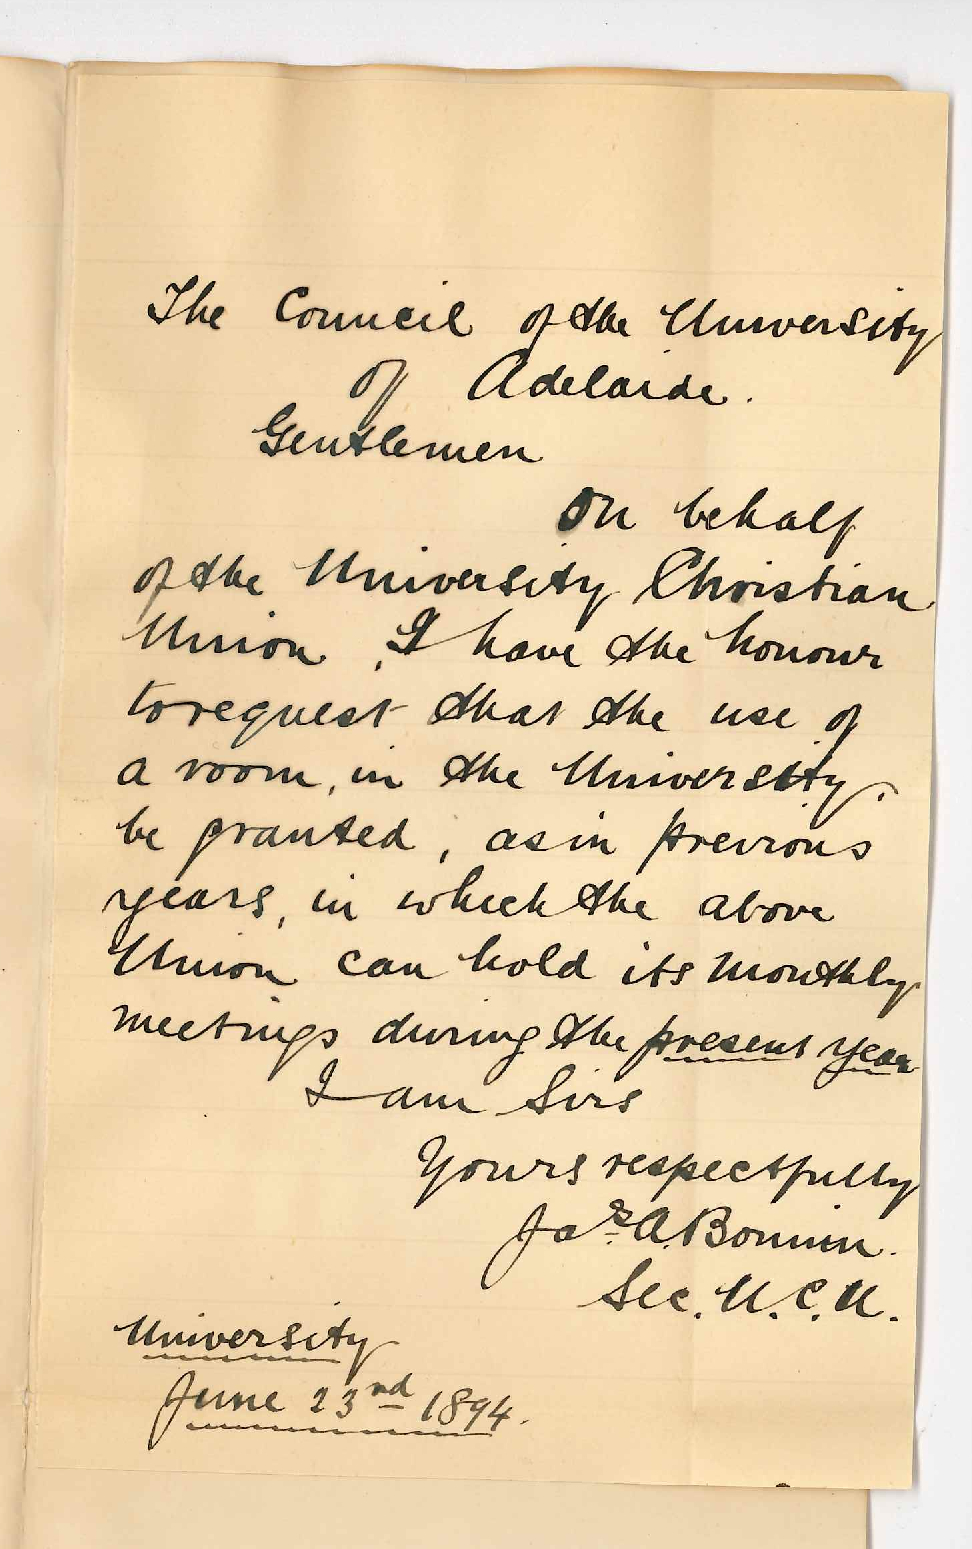 The Council of the University
of Adelaide.
Gentlemen
On behalf
of the University Christian
Union, I have the honour
to request that the use of
a room, in the University,
be granted, as in previous
years, in which the above
Union can hold its monthly
meetings during the present year
I am Sirs
Yours respectfully
Jas. A. Bonnin.
Sec. U. C. U.
University
June 23rd 1894.